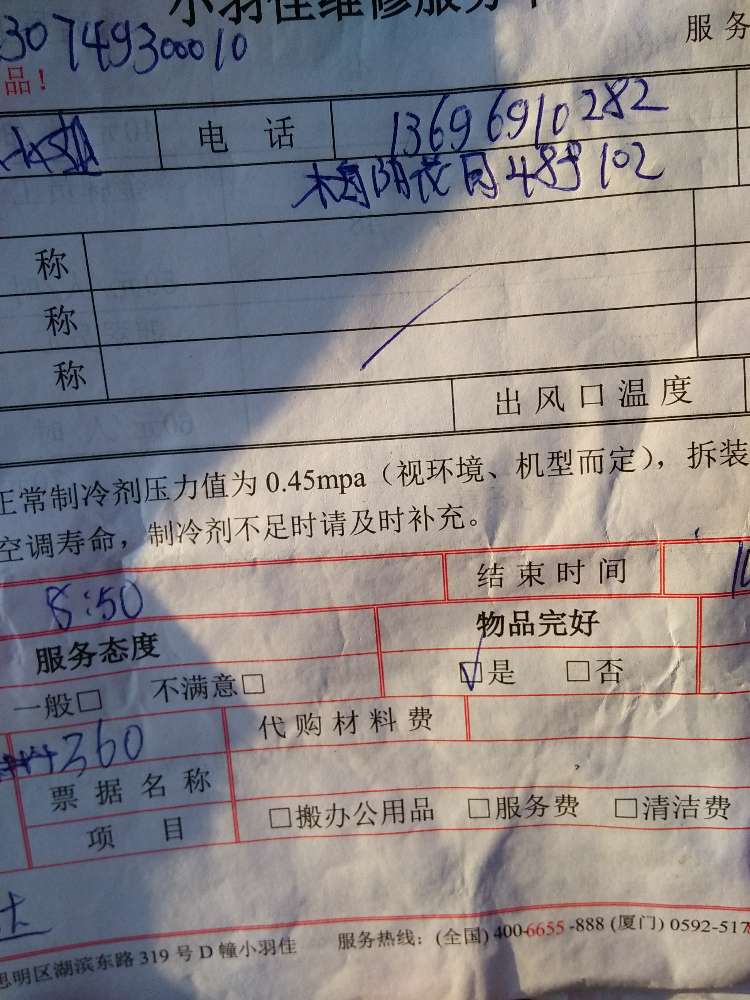 小羽佳维修服务
服务
3074930010
品！
电 话 13696910282
48号102
称
称
称
出风口温度
正常制冷剂压力值为0.45mpa（视环境、机型而定），拆装
空调寿命，制冷剂不足时请及时补充。
8:50 结束时间 10
服务态度 物品完好
一般□ 不满意□ ☑是 □否
360 代购材料费
票据名称
项 目 □搬办公用品 □服务费 □清洁费
思明区湖滨东路319号D幢小羽佳 服务热线：(全国) 400-6655-888 (厦门) 0592-517